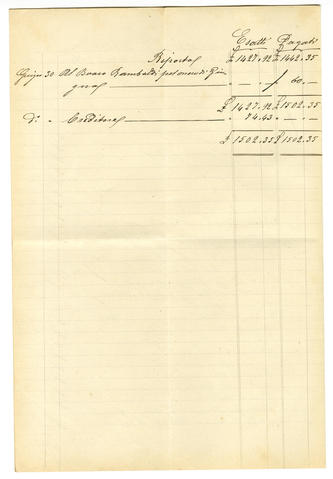 Esatti Pagati
Riporto £ 1427.92 £ 1442.35
Giugno 30 Al Boaro Rambaldi pel mese di Giu
gno — . — 60. —
£ 1427.92 £ 1502.35
D° " Creditore 74.43 — . —
£ 1502.35 £ 1502.35